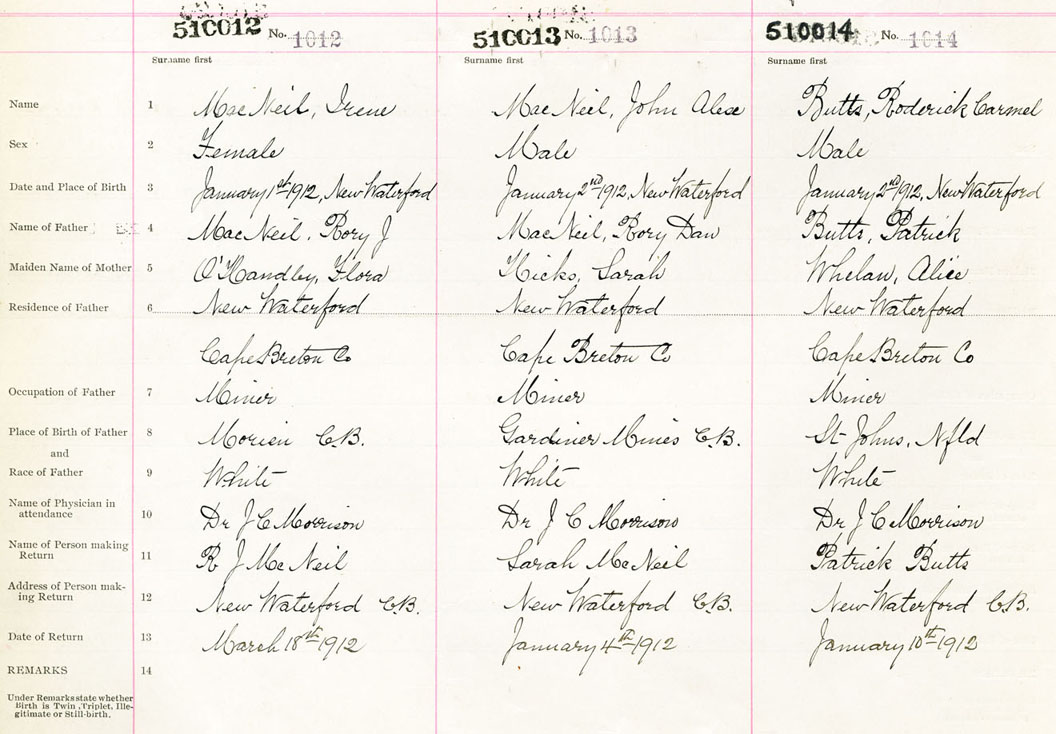 510012 No. 1012 510013 No. 1013 510014 No. 1014
Surname first Surname first Surname first
Name 1 MacNeil, Irene MacNeil, John Alex Butts, Roderick Carmel
Sex 2 Female Male Male
Date and Place of Birth 3 January 1st 1912, New Waterford January 2nd 1912, New Waterford January 2nd 1912, New Waterford
Name of Father 4 MacNeil, Rory J MacNeil, Rory Dan Butts, Patrick
Maiden Name of Mother 5 O'Handley, Flora Hicks, Sarah Whelan, Alice
Residence of Father 6 New Waterford New Waterford New Waterford
Cape Breton Co Cape Breton Co Cape Breton Co
Occupation of Father 7 Miner Miner Miner
Place of Birth of Father 8 Morien C.B. Gardiner Mines C.B. St Johns, Nfld
and
Race of Father 9 White White White
Name of Physician in
attendance 10 Dr J C Morrison Dr J C Morrison Dr J C Morrison
Name of Person making
Return 11 R J McNeil Sarah McNeil Patrick Butts
Address of Person mak-
ing Return 12 New Waterford C.B. New Waterford C.B. New Waterford C.B.
Date of Return 13 March 18th 1912 January 4th 1912 January 10th 1912
REMARKS 14
Under Remarks state whether
Birth is Twin, Triplet, Ille-
gitimate or Still-birth.